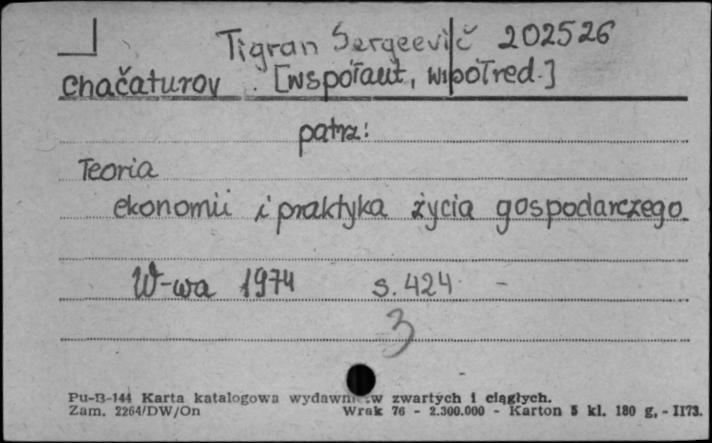 Tigran Sergeevič 202526
Chačaturov [współaut, współred.]
patrz:
Teoria
ekonomii i praktyka życia gospodarczego
W-wa 1974 s. 424 -
3
Pu-B-144 Karta katalogowa wydawnictw zwartych i ciągłych.
Zam. 2264/DW/On Wrak 76 - 2.300.000 - Karton 5 kl. 180 g. - II73.